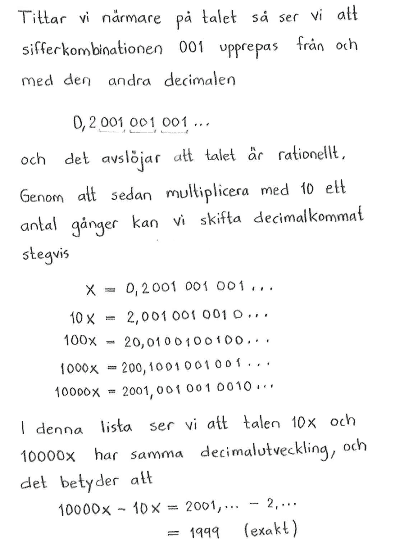 Tittar vi närmare på talet så ser vi att
sifferkombinationen 001 upprepas från och
med den andra decimalen
0,2 001 001 001 ...
och det avslöjar att talet är rationellt.
Genom att sedan multiplicera med 10 ett
antal gånger kan vi skifta decimalkommat
stegvis
x = 0,2001 001 001 ...
10x = 2,001 001 001 0 ...
100x = 20,0100100100...
1000x = 200,1001001001 ...
10000x = 2001,001 001 0010 ...
I denna lista ser vi att talen 10x och
10000x har samma decimalutveckling, och
det betyder att
10000x - 10x = 2001,... - 2,...
= 1999 (exakt)